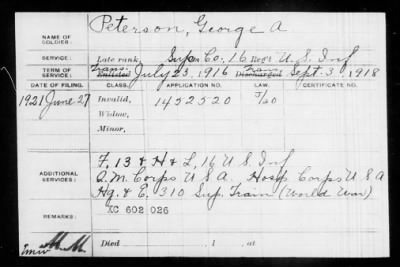 NAME OF SOLDIER: Peterson, George A
SERVICE: Late rank, Sup Co. 16 Reg't U.S. Inf
TERM OF SERVICE: Trans. Enlisted July 23, 1916 Trans. Discharged Sept. 3, 1918
DATE OF FILING. CLASS. APPLICATION NO. LAW. CERTIFICATE NO.
1921 June 27 Invalid, 1452520
Widow,
Minor,
ADDITIONAL SERVICES: F, 13 & H & L, 16 U S Inf
Q.M. Corps U S A. Hosp Corps U S A
Hq. & E, 310 Sup. Train (World War)
REMARKS: XC 602 026
Died , 1 , at